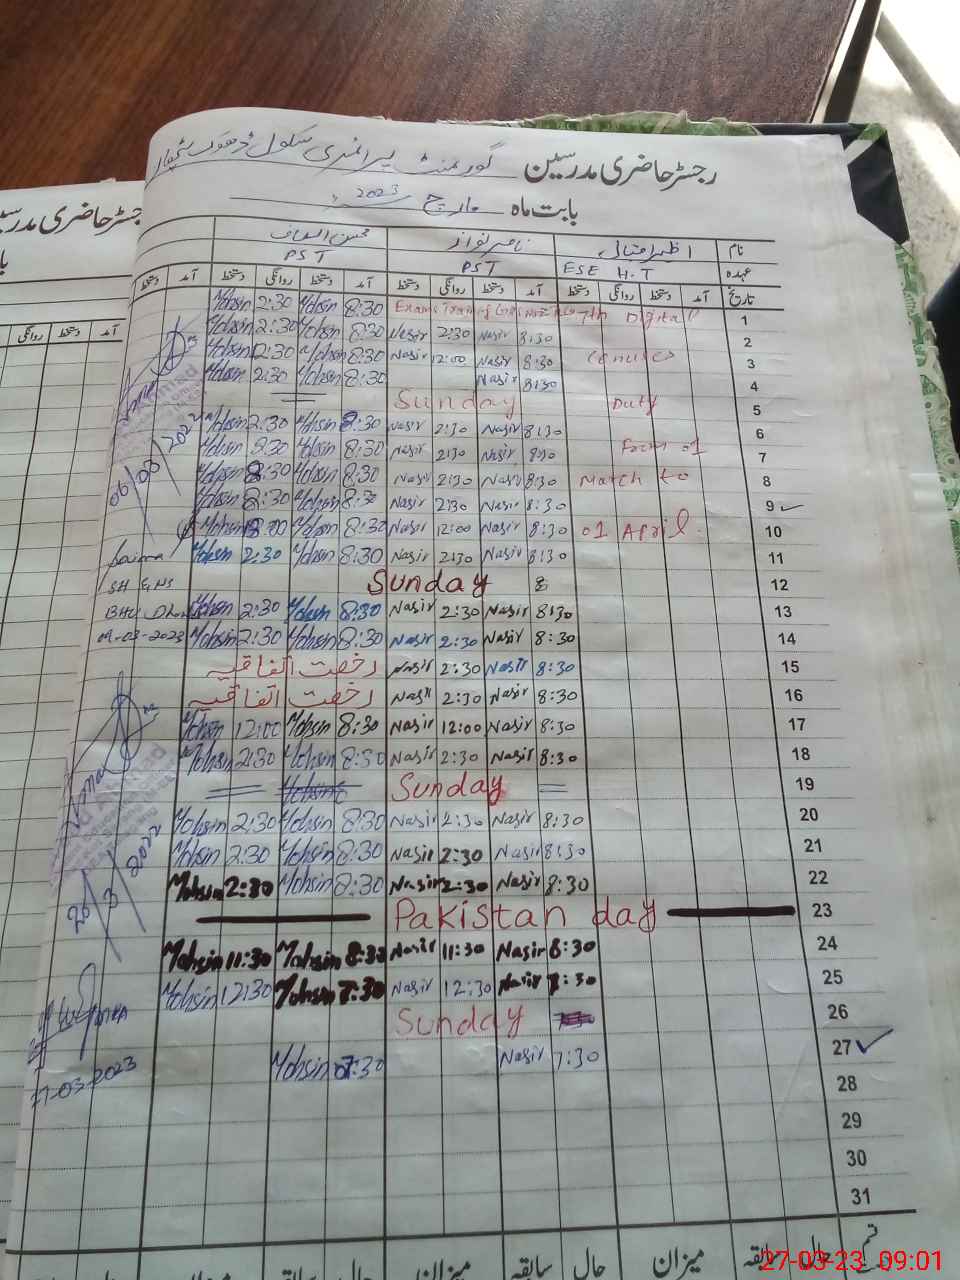 رجسٹر حاضری مدرسین گورنمنٹ پرائمری سکول
بابت ماہ مارچ 2023
نام اظہر اقبال ناصر نواز محسن الطاف
عہدہ ESE H.T PST PST
تاریخ آمد دستخط روانگی دستخط آمد دستخط روانگی دستخط آمد دستخط روانگی دستخط آمد دستخط
Mohsin 2:30 Mohsin 8:30 Digital 1
Mohsin 2:30 Mohsin 8:30 Nasir 2:30 Nasir 8:30 2
Mohsin 12:30 Mohsin 8:30 Nasir 12:00 Nasir 8:30 3
Mohsin 2:30 Mohsin 8:30 Nasir 8:30 4
Sunday Duty 5
Mohsin 2:30 Mohsin 8:30 Nasir 2:30 Nasir 8:30 6
Mohsin 2:30 Mohsin 8:30 Nasir 2:30 Nasir 8:30 From 01 7
Mohsin 8:30 Mohsin 8:30 Nasir 2:30 Nasir 8:30 March to 8
Mohsin 8:30 Mohsin 8:30 Nasir 2:30 Nasir 8:30 9
Mohsin Mohsin 8:30 Nasir 12:00 Nasir 8:30 01 April. 10
Saima Mohsin 2:30 Mohsin 8:30 Nasir 2:30 Nasir 8:30 11
Sunday 12
BHU Mohsin 2:30 Mohsin 8:30 Nasir 2:30 Nasir 8:30 13
Mohsin 2:30 Mohsin 8:30 Nasir 2:30 Nasir 8:30 14
رخصت اتفاقیہ Nasir 2:30 Nasir 8:30 15
رخصت اتفاقیہ Nasir 2:30 Nasir 8:30 16
Mohsin 12:00 Mohsin 8:30 Nasir 12:00 Nasir 8:30 17
Mohsin 2:30 Mohsin 8:30 Nasir 2:30 Nasir 8:30 18
Sunday 19
Mohsin 2:30 Mohsin 8:30 Nasir 2:30 Nasir 8:30 20
Mohsin 2:30 Mohsin 8:30 Nasir 2:30 Nasir 8:30 21
Mohsin 2:30 Mohsin 8:30 Nasir 2:30 Nasir 8:30 22
Pakistan day 23
Mohsin 11:30 Mohsin 8:30 Nasir 11:30 Nasir 8:30 24
Mohsin 12:30 Mohsin 7:30 Nasir 12:30 Nasir 7:30 25
Sunday 26
Mohsin 7:30 Nasir 7:30 27
28
29
30
31
قسم حال سابقہ میزان حال سابقہ میزان حال سابقہ
27-03-2023
رجسٹر حاضری مدرسین
آمد دستخط روانگی دستخط
27-03-23 09:01